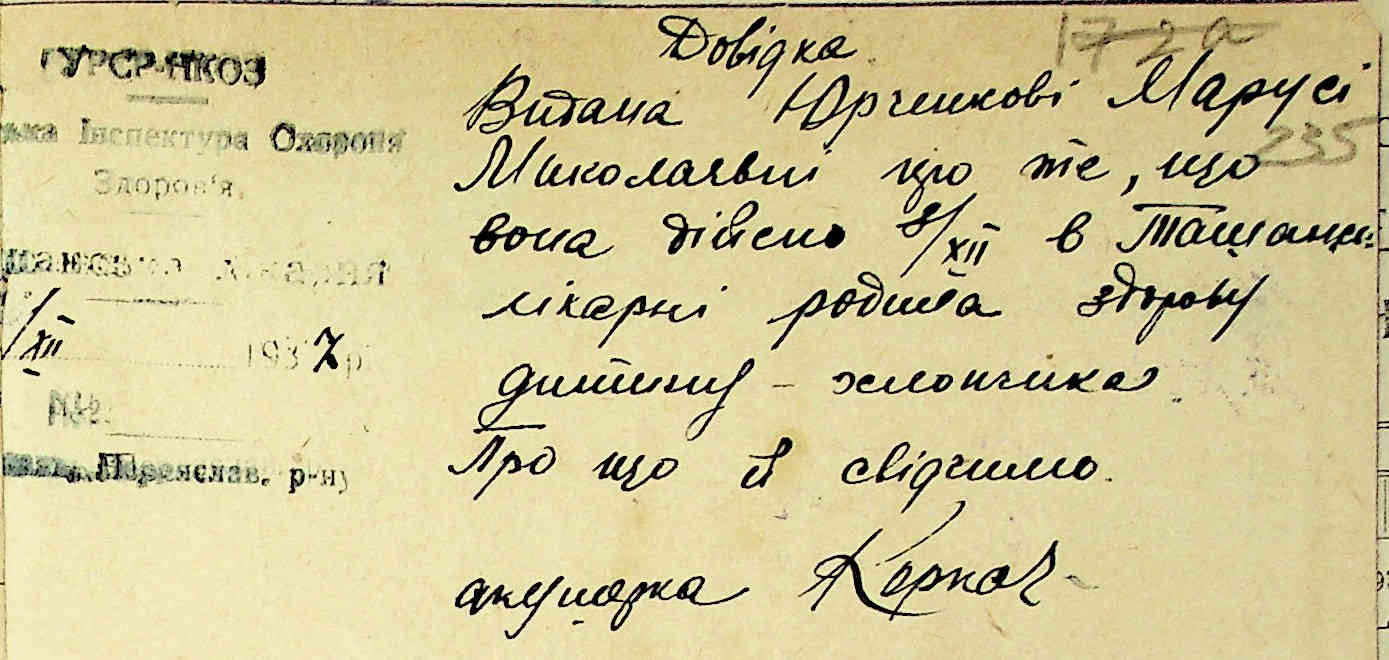 УРСР-НКОЗ
Інспектура Охорони
Здоров'я.
/XII 1937 р.
№
Переяслав. р-ну
172а
235
Довідка
Видана Юрченкові Марусі
Миколаявні про те, що
вона дійсно 8/XII в Ташанск:
лікарні родила здорову
дитину - хлопчика.
Про що й свідчимо.
акушорка